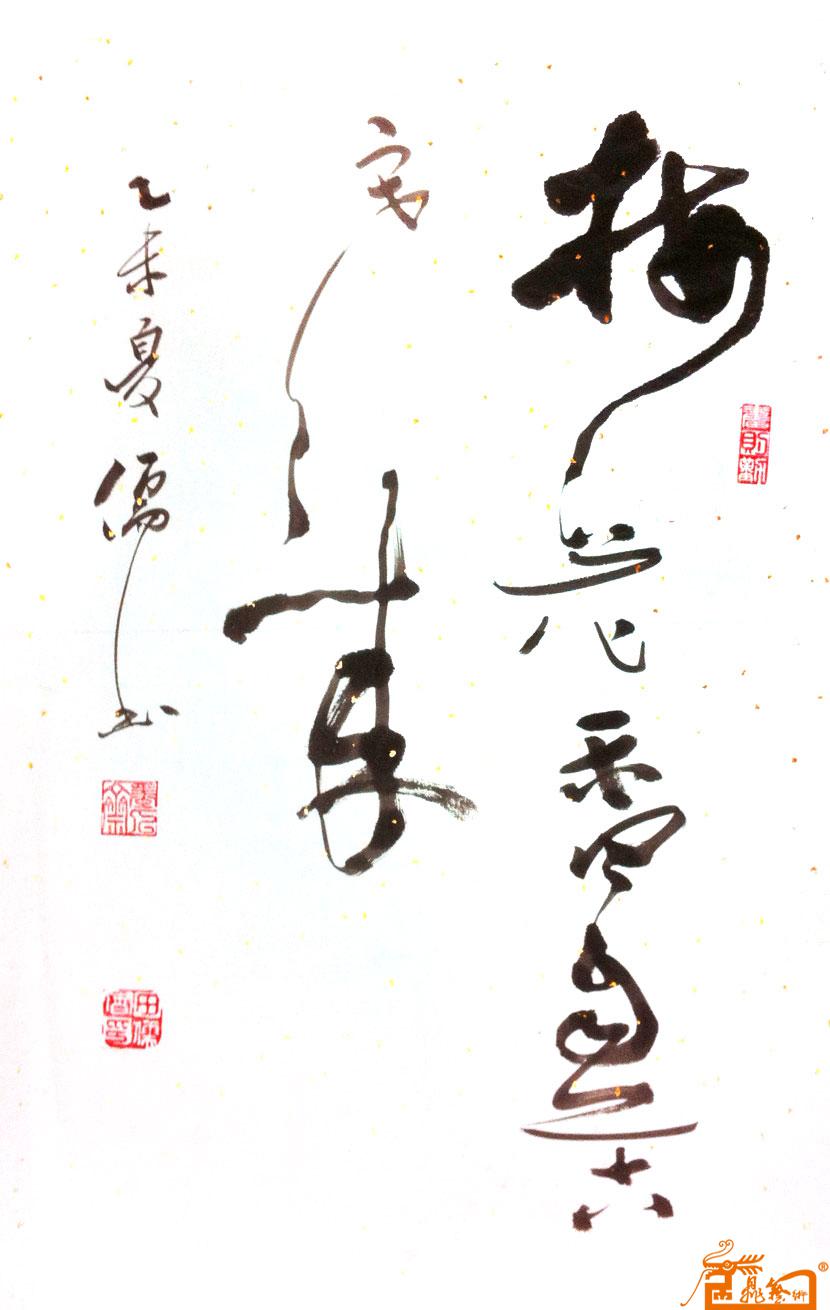 梅花香自苦
寒来
乙未夏儒书